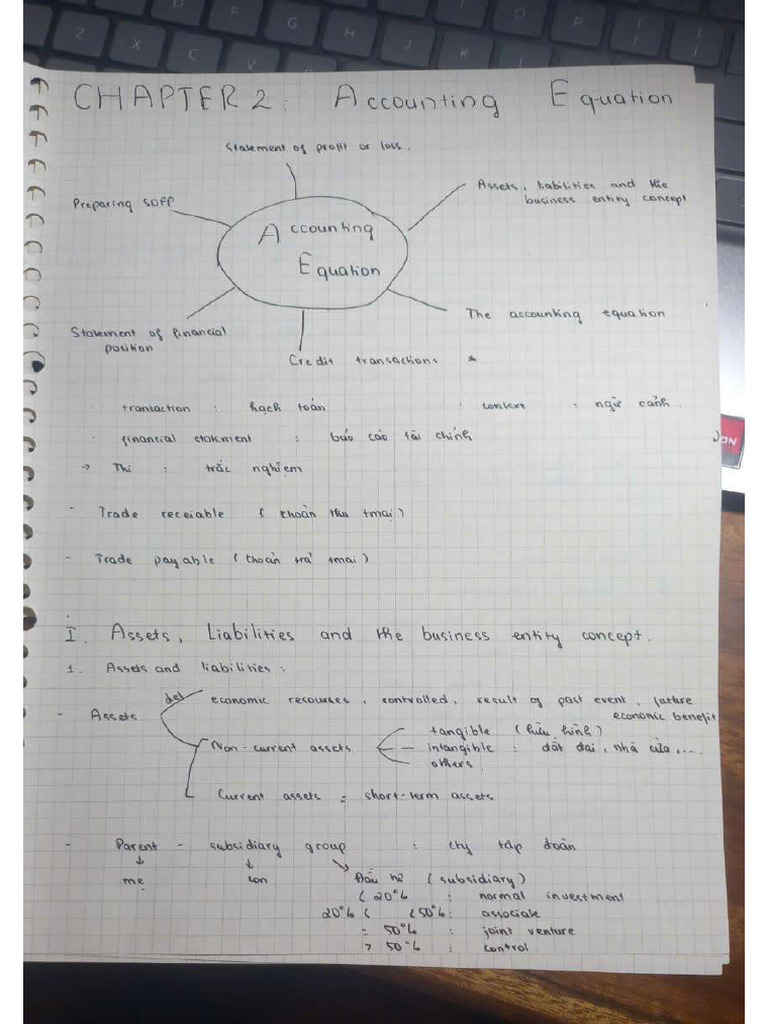 CHAPTER 2: Accounting Equation
Statement of profit or loss.
Preparing SOFP
Assets, liabilities and the
business entity concept
Accounting
Equation
The accounting equation
Statement of financial
position
Credit transactions *
transaction : hạch toán
context : ngữ cảnh.
financial statement : báo cáo tài chính
→ Thi : trắc nghiệm
- Trade receiable ( khoản thu tmại)
- Trade payable ( khoản trả tmại)
I. Assets, Liabilities and the business entity concept.
1. Assets and liabilities :
def economic recourses, controlled, result of past event, future
economic benefit
- Assets
Non-current assets
tangible (hữu hình)
intangible : đất đai, nhà cửa,...
others.
Current assets = short-term assets
- Parent - subsidiary group : cty tập đoàn
mẹ con Đầu tư (subsidiary)
< 20% : normal investment
20% < < 50% : associate
= 50% : joint venture
> 50% : control